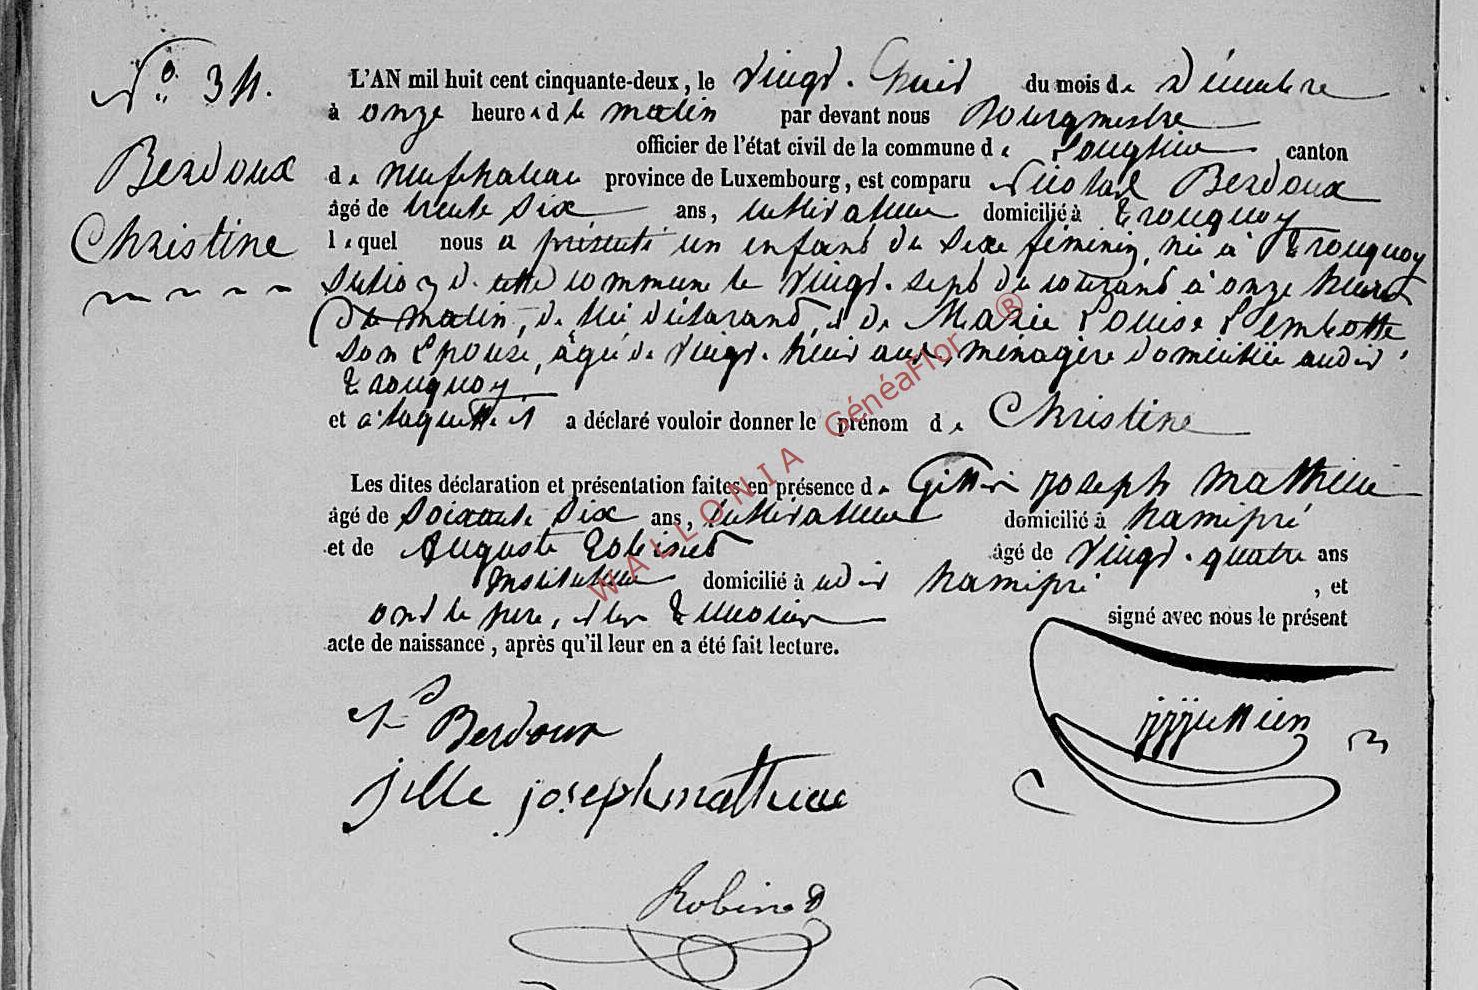 N° 34.
Berdoux
Christine
L'AN mil huit cent cinquante-deux, le vingt-huit du mois de Décembre
à onze heures du matin par devant nous Bourgmestre
officier de l'état civil de la commune de Longlier canton
de neufchateau province de Luxembourg, est comparu Nicolas Berdoux
âgé de trente six ans, cultivateur domicilié à Tronquoy
lequel nous a présenté un enfant du sexe féminin, née à Tronquoy
section de cette commune le vingt-sept du courant à onze heures
du matin, de lui déclarant, et de Marie Louise Lembotte
son épouse, âgée de vingt-huit ans, ménagère domiciliée audit
Tronquoy
et à laquelle il a déclaré vouloir donner le prénom de Christine
Les dites déclaration et présentation faites en présence de joseph mathieu
âgé de soixante six ans, cultivateur domicilié à hamipré
et de Auguste Robinet âgé de vingt-quatre ans
Instituteur domicilié à udit hamipré, et
ont le père, et les témoins signé avec nous le présent
acte de naissance, après qu'il leur en a été fait lecture.
N Berdoux
jille joseph mathieu
Robinet
WALLONIA GénéaFlor ®